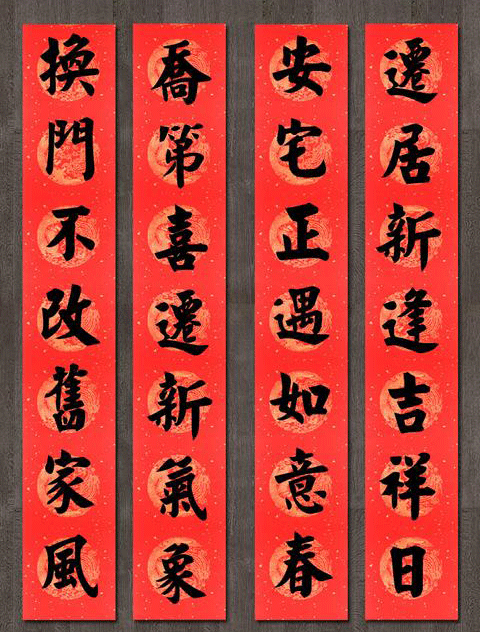 遷居新逢吉祥日
安宅正遇如意春
喬第喜遷新氣象
換門不改舊家風